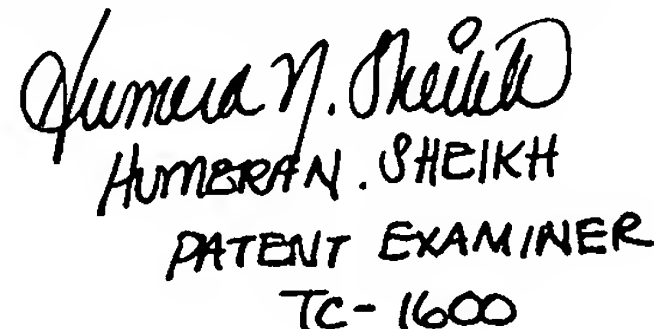 Humera N. Sheikh
HUMERA N. SHEIKH
PATENT EXAMINER
TC-1600